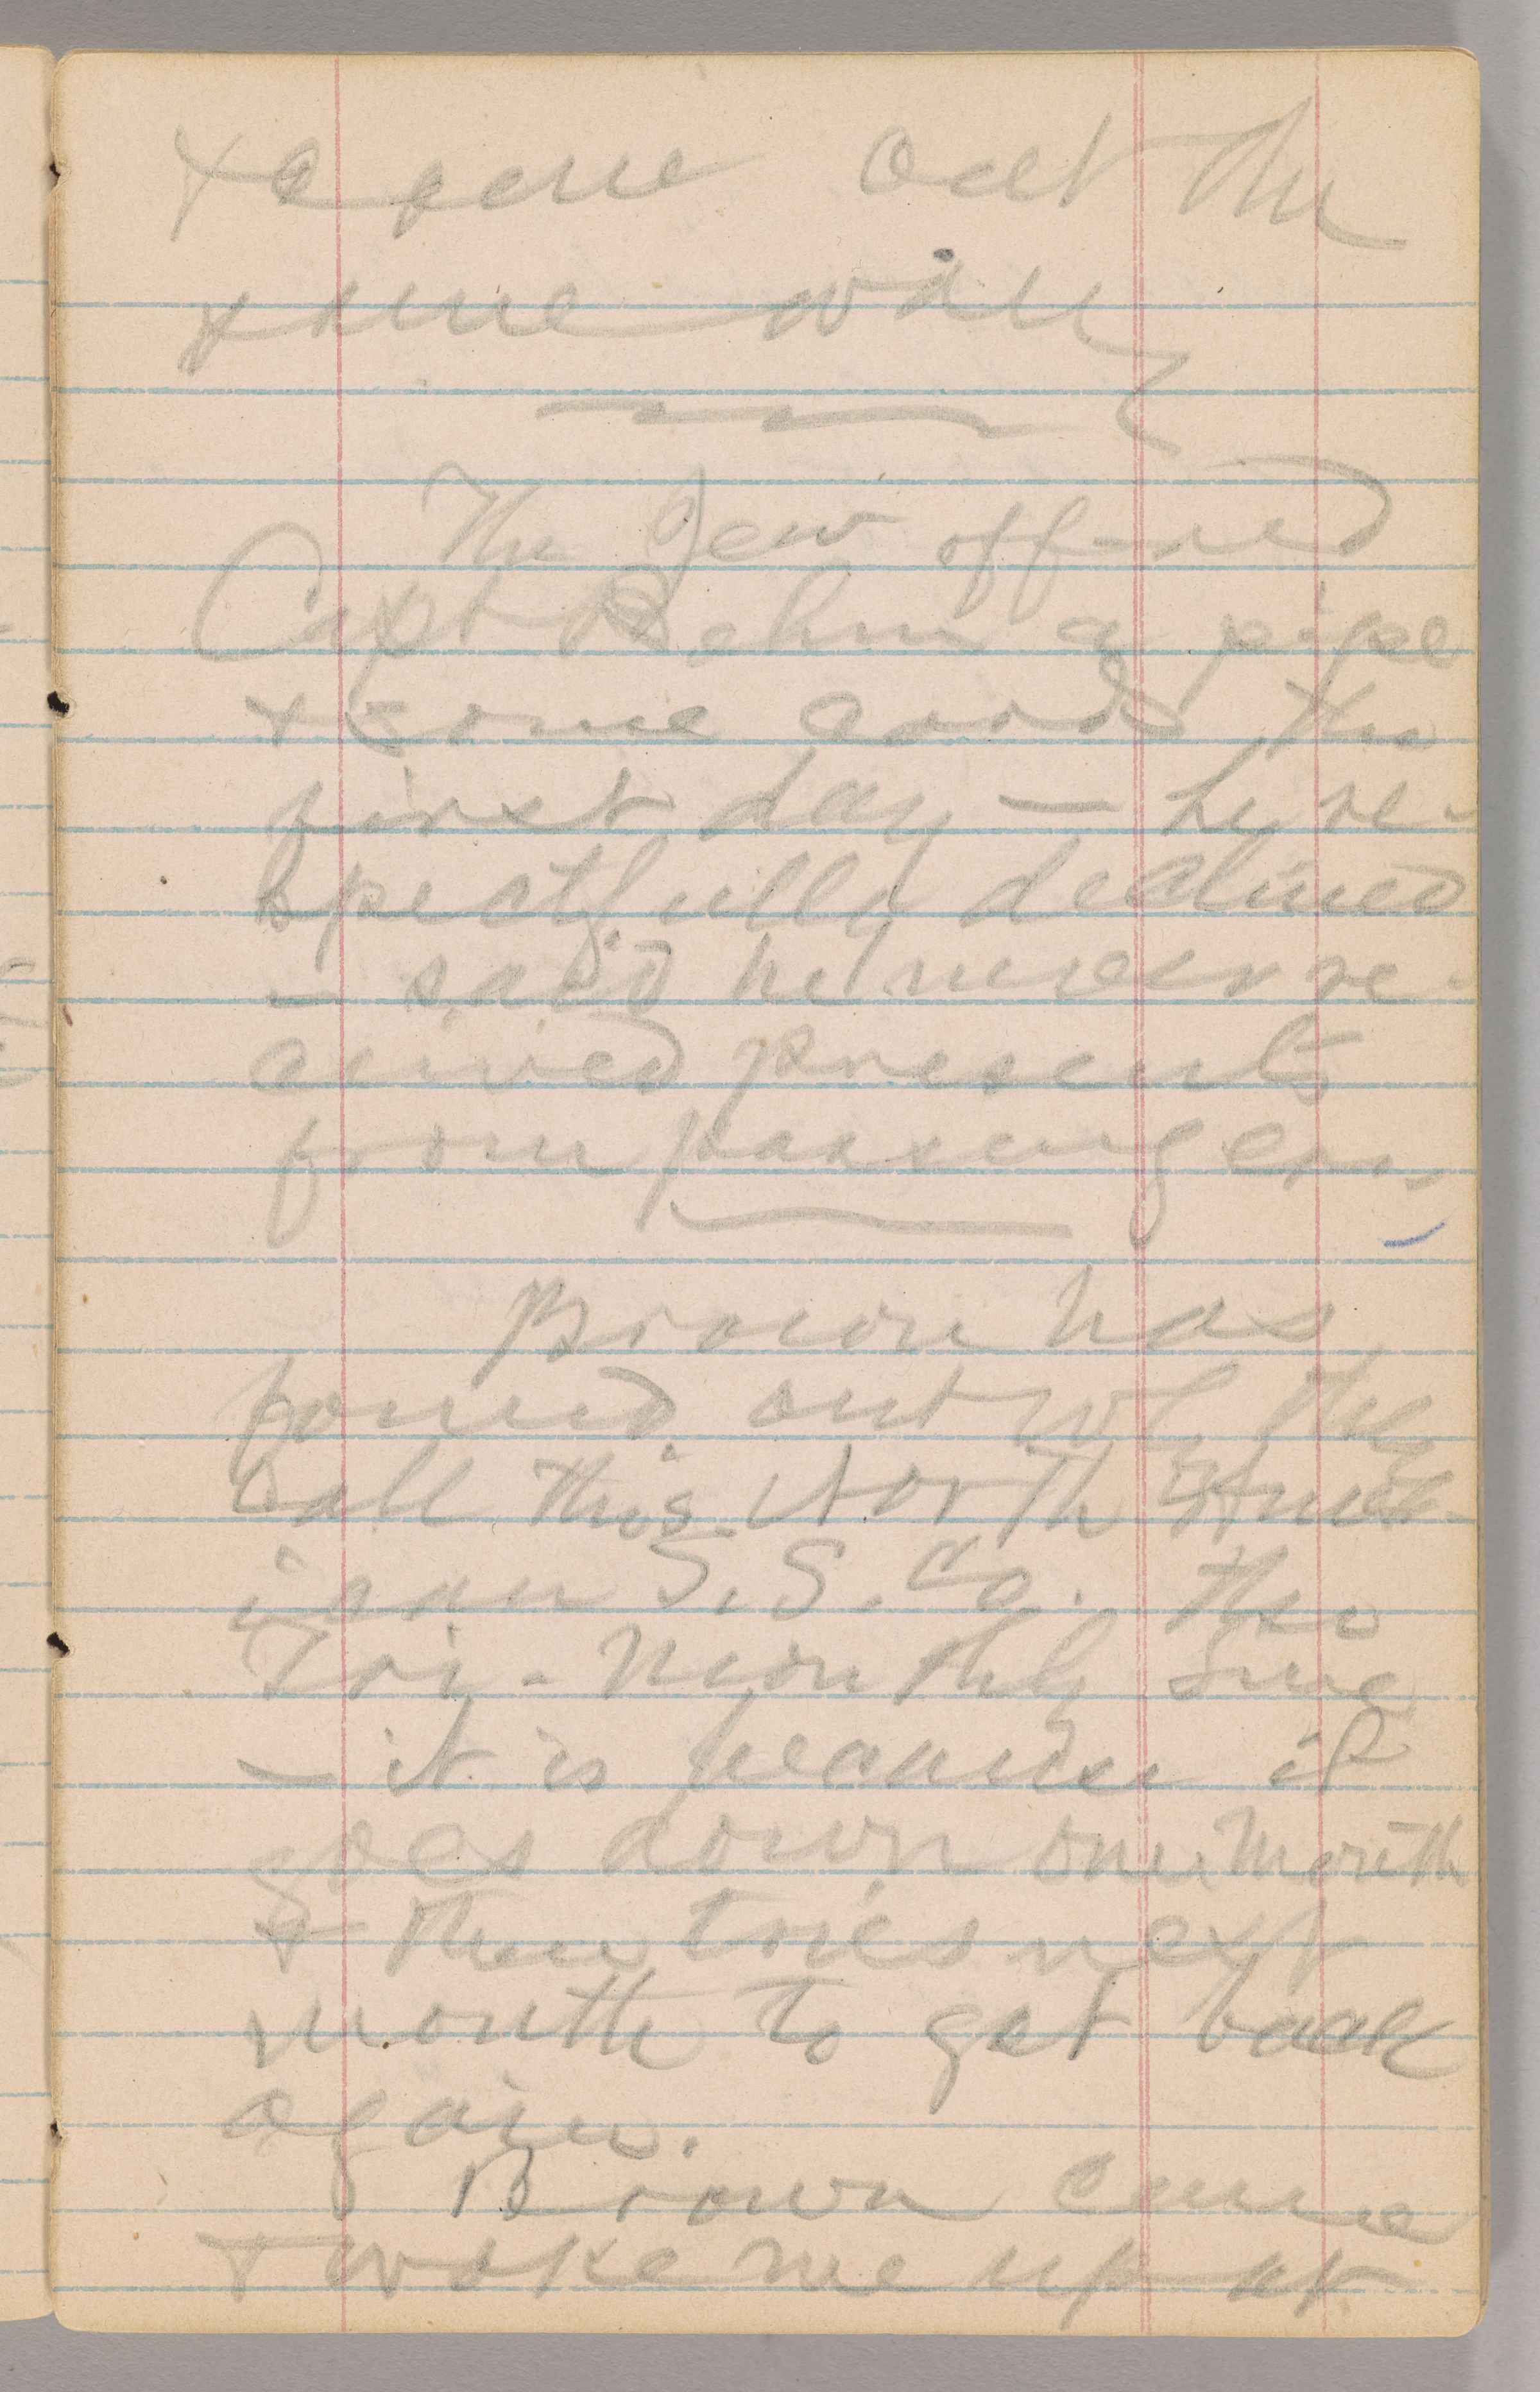 & came out the
same way
The Jew offered
Capt Behm a pipe
& some cards the
first day — he re-
spectfully declined
— said he never re-
ceived presents
from passengers.
Brown has
found out why they
call this North Amer-
ican S. S. Co. the
Tri-Monthly Line
— it is because it
goes down one month
& then tries next
month to get back
again.
Brown came
& woke me up at